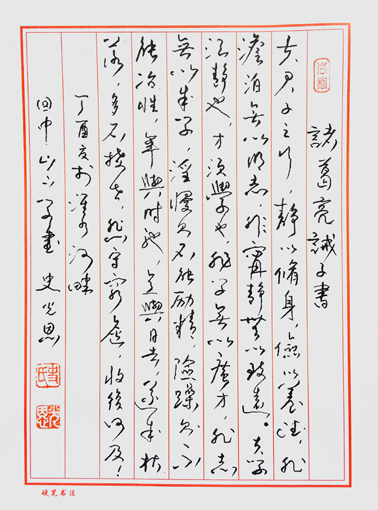 諸葛亮誡子書
夫君子之行,靜以脩身,儉以養德,非
澹泊無以明志,非寧靜無以致遠。夫學
須靜也,才須學也,非学無以廣才,非志
無以成学,淫慢則不能励精,險躁則不
能冶性,年與時馳,意與日去,遂成枯
落,多不接世,悲守窮廬,將復何及!
丁酉夏於淮水河畔
田中山人 書 史光恩
硬笔书法